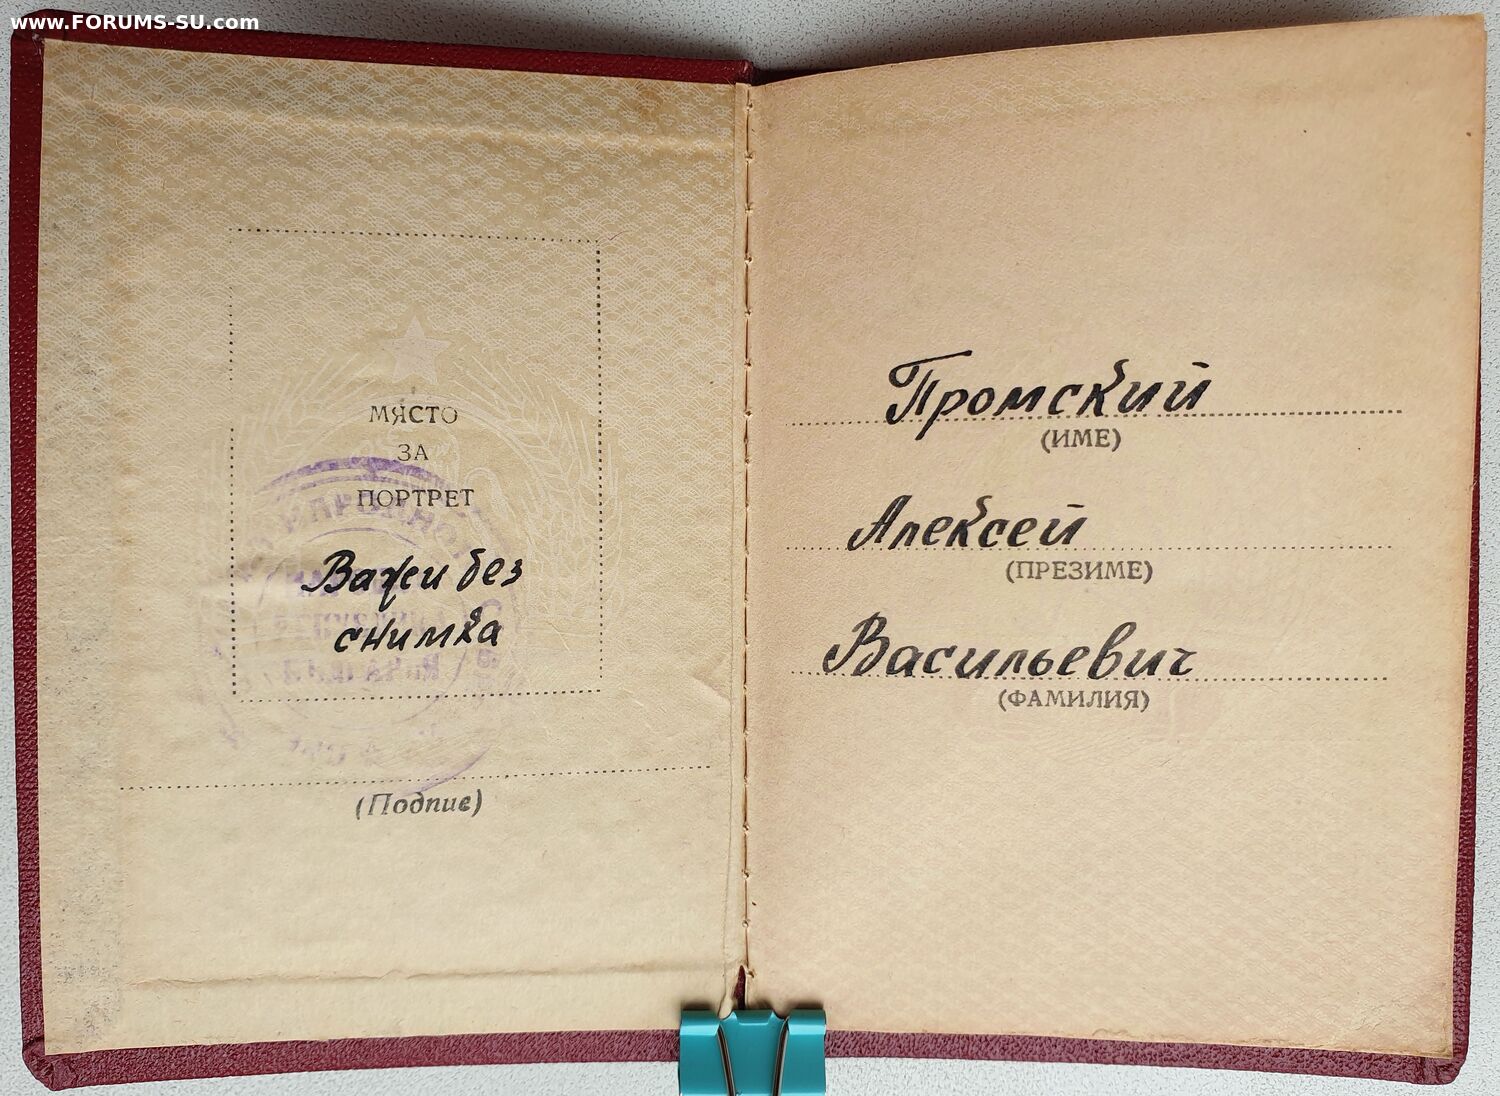 www.FORUMS-SU.com
МЯСТО
ЗА
ПОРТРЕТ
Важи без
снимка
(Подпис)
Промский
(ИМЕ)
Алексей
(ПРЕЗИМЕ)
Васильевич
(ФАМИЛИЯ)